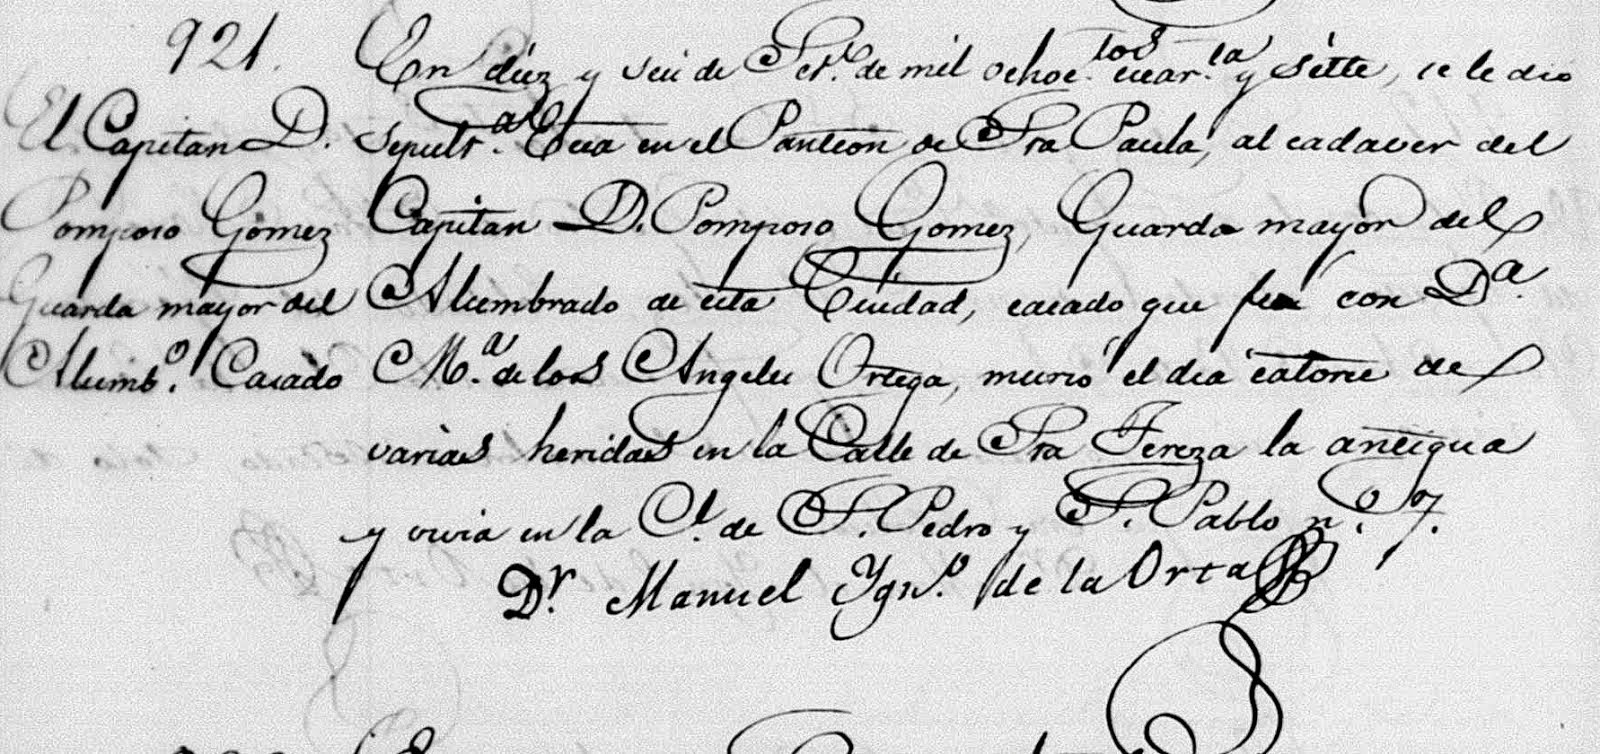 921.
El Capitan D.
Pomposo Gómez
Guarda mayor del
Alumb.o Casado
En diez y seis de Set.e de mil ochoc.tos cuar.ta y siete, se le dio
sepult.a Ecca en el Panteon de Sta Paula, al cadaver del
Capitan D. Pomposo Gomez, Guarda mayor del
Alumbrado de esta Ciudad, casado que fué con D.a
M.a de los Angeles Ortega, murió el dia catorce de
varias heridas en la Calle de Sta Tereza la antigua
y vivia en la C.l de S. Pedro y S. Pablo n.o 7.
D.r Manuel Ygn.o de la Orta